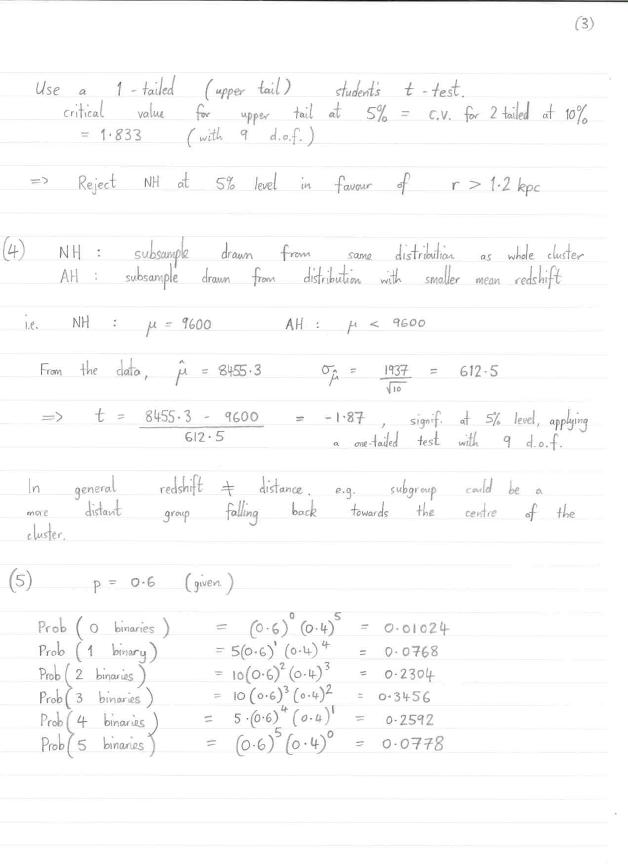 (3)
Use a 1-tailed (upper tail) student's t-test.
critical value for upper tail at 5% = c.v. for 2 tailed at 10%
= 1.833 (with 9 d.o.f.)
=> Reject NH at 5% level in favour of r > 1.2 kpc
(4) NH : subsample drawn from same distribution as whole cluster
AH : subsample drawn from distribution with smaller mean redshift
i.e. NH : μ = 9600 AH : μ < 9600
From the data, μ̂ = 8455.3 σ_μ̂ = 1937/√10 = 612.5
=> t = (8455.3 - 9600)/612.5 = -1.87 , signif. at 5% level, applying
a one-tailed test with 9 d.o.f.
In general redshift ≠ distance. e.g. subgroup could be a
more distant group falling back towards the centre of the
cluster.
(5) p = 0.6 (given)
Prob (0 binaries) = (0.6)⁰ (0.4)⁵ = 0.01024
Prob (1 binary) = 5(0.6)¹ (0.4)⁴ = 0.0768
Prob (2 binaries) = 10(0.6)² (0.4)³ = 0.2304
Prob (3 binaries) = 10(0.6)³ (0.4)² = 0.3456
Prob (4 binaries) = 5.(0.6)⁴ (0.4)¹ = 0.2592
Prob (5 binaries) = (0.6)⁵ (0.4)⁰ = 0.0778